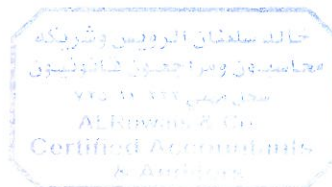 خالد سلمان الرويس وشريكه
محاسبون ومراجعون قانونيون
سجل
AlRowais & Co.
Certified Accountants
& Auditors